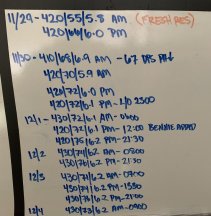 11/29 - 420/55/5.8 AM (FRESH RES)
420/66/6.0 PM
11/30 - 410/68/6.9 AM - 67 DRS PH↓
420/70/5.9 AM
420/72/6.0 PM
420/72/6.1 PM - 2300
12/1 - 430/72/6.1 AM - 0600
420/72/6.1 PM - 12:00 BENNIE ADDED
420/75/6.2 PM - 21:30
12/2 430/74/6.2 AM - 0800
430/76/6.2 PM - 21:30
12/3 430/74/6.2 AM - 0900
430/74/6.2 PM - 1530
430/76/6.2 PM - 21:00
12/4 430/73/6.2 AM - 0900